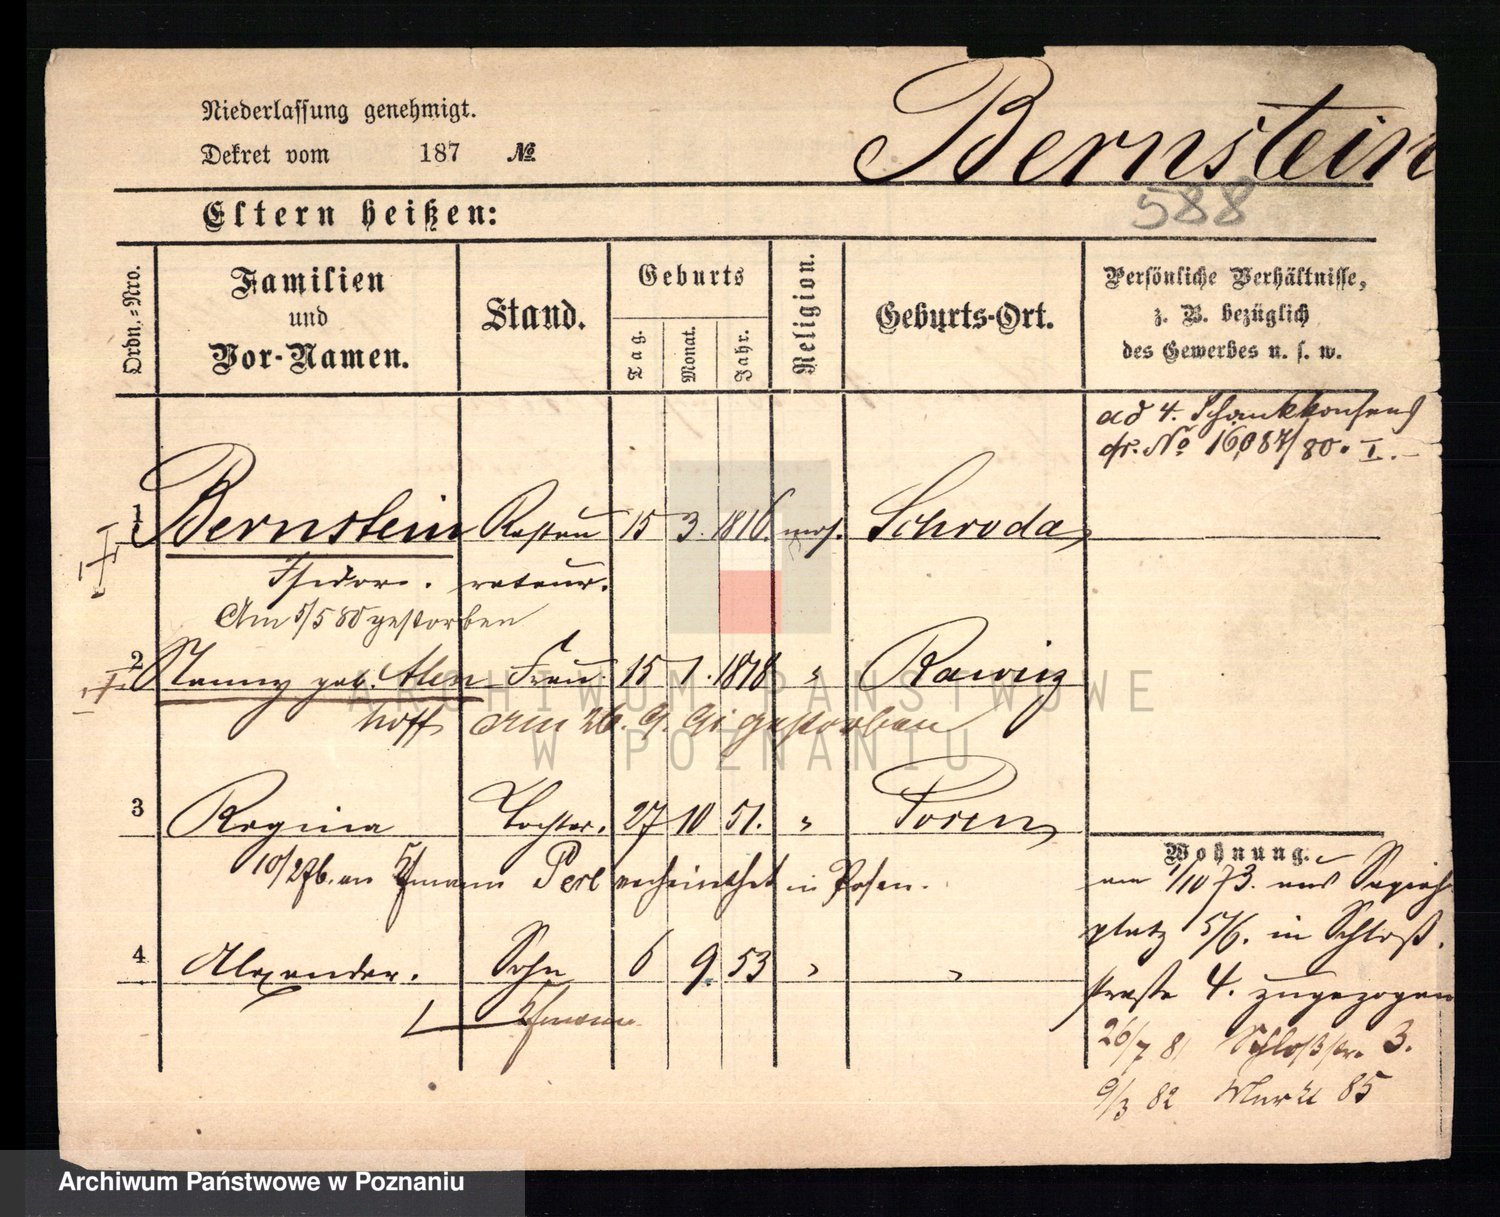 Niederlassung genehmigt.
Dekret vom 187 №
Bernstein
588
Eltern heißen:
Ordn.-Nro.
Familien
und
Vor-Namen.
Stand.
Geburts
Tag.
Monat.
Jahr.
Religion.
Geburts-Ort.
Persönliche Verhältnisse,
z. B. bezüglich
des Gewerbes u. s. w.
ad 4. Schankkonsens
cfr. No 16087/80. I.
1 Bernstein Restau 15 3. 1816. mos. Schroda
Isidor. rateur.
Am 5/5 80 gestorben
2 Nanny geb. Alen Frau 15 1. 1818 " Rawicz
hoff am 26. 9. 91 gestorben
3 Regina Tochter. 27 10 51. " Posen
10/2 76. an Kfmann Perl verheirathet in Posen.
4 Alexander. Sohn 6 9. 53 " "
Kfmann
Wohnung.
am 1/10 73. aus Sapieh
platz 5/6. in Schloß.
straße 4. zugezogen
26/7 81 Schloßstr. 3.
9/3 82 Markt 85
ARCHIWUM PAŃSTWOWE
W POZNANIU
Archiwum Państwowe w Poznaniu